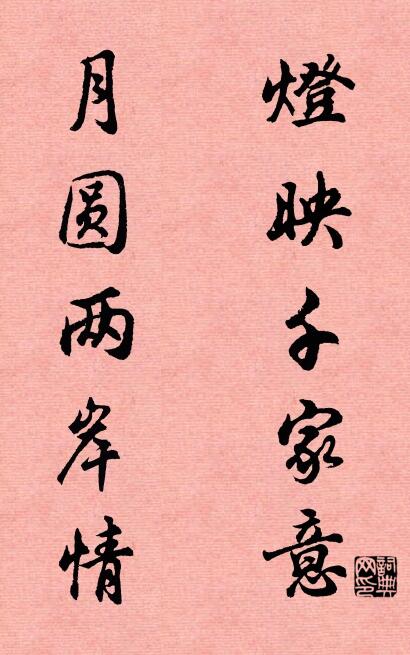 燈映千家意
月圆两岸情
詞典网印